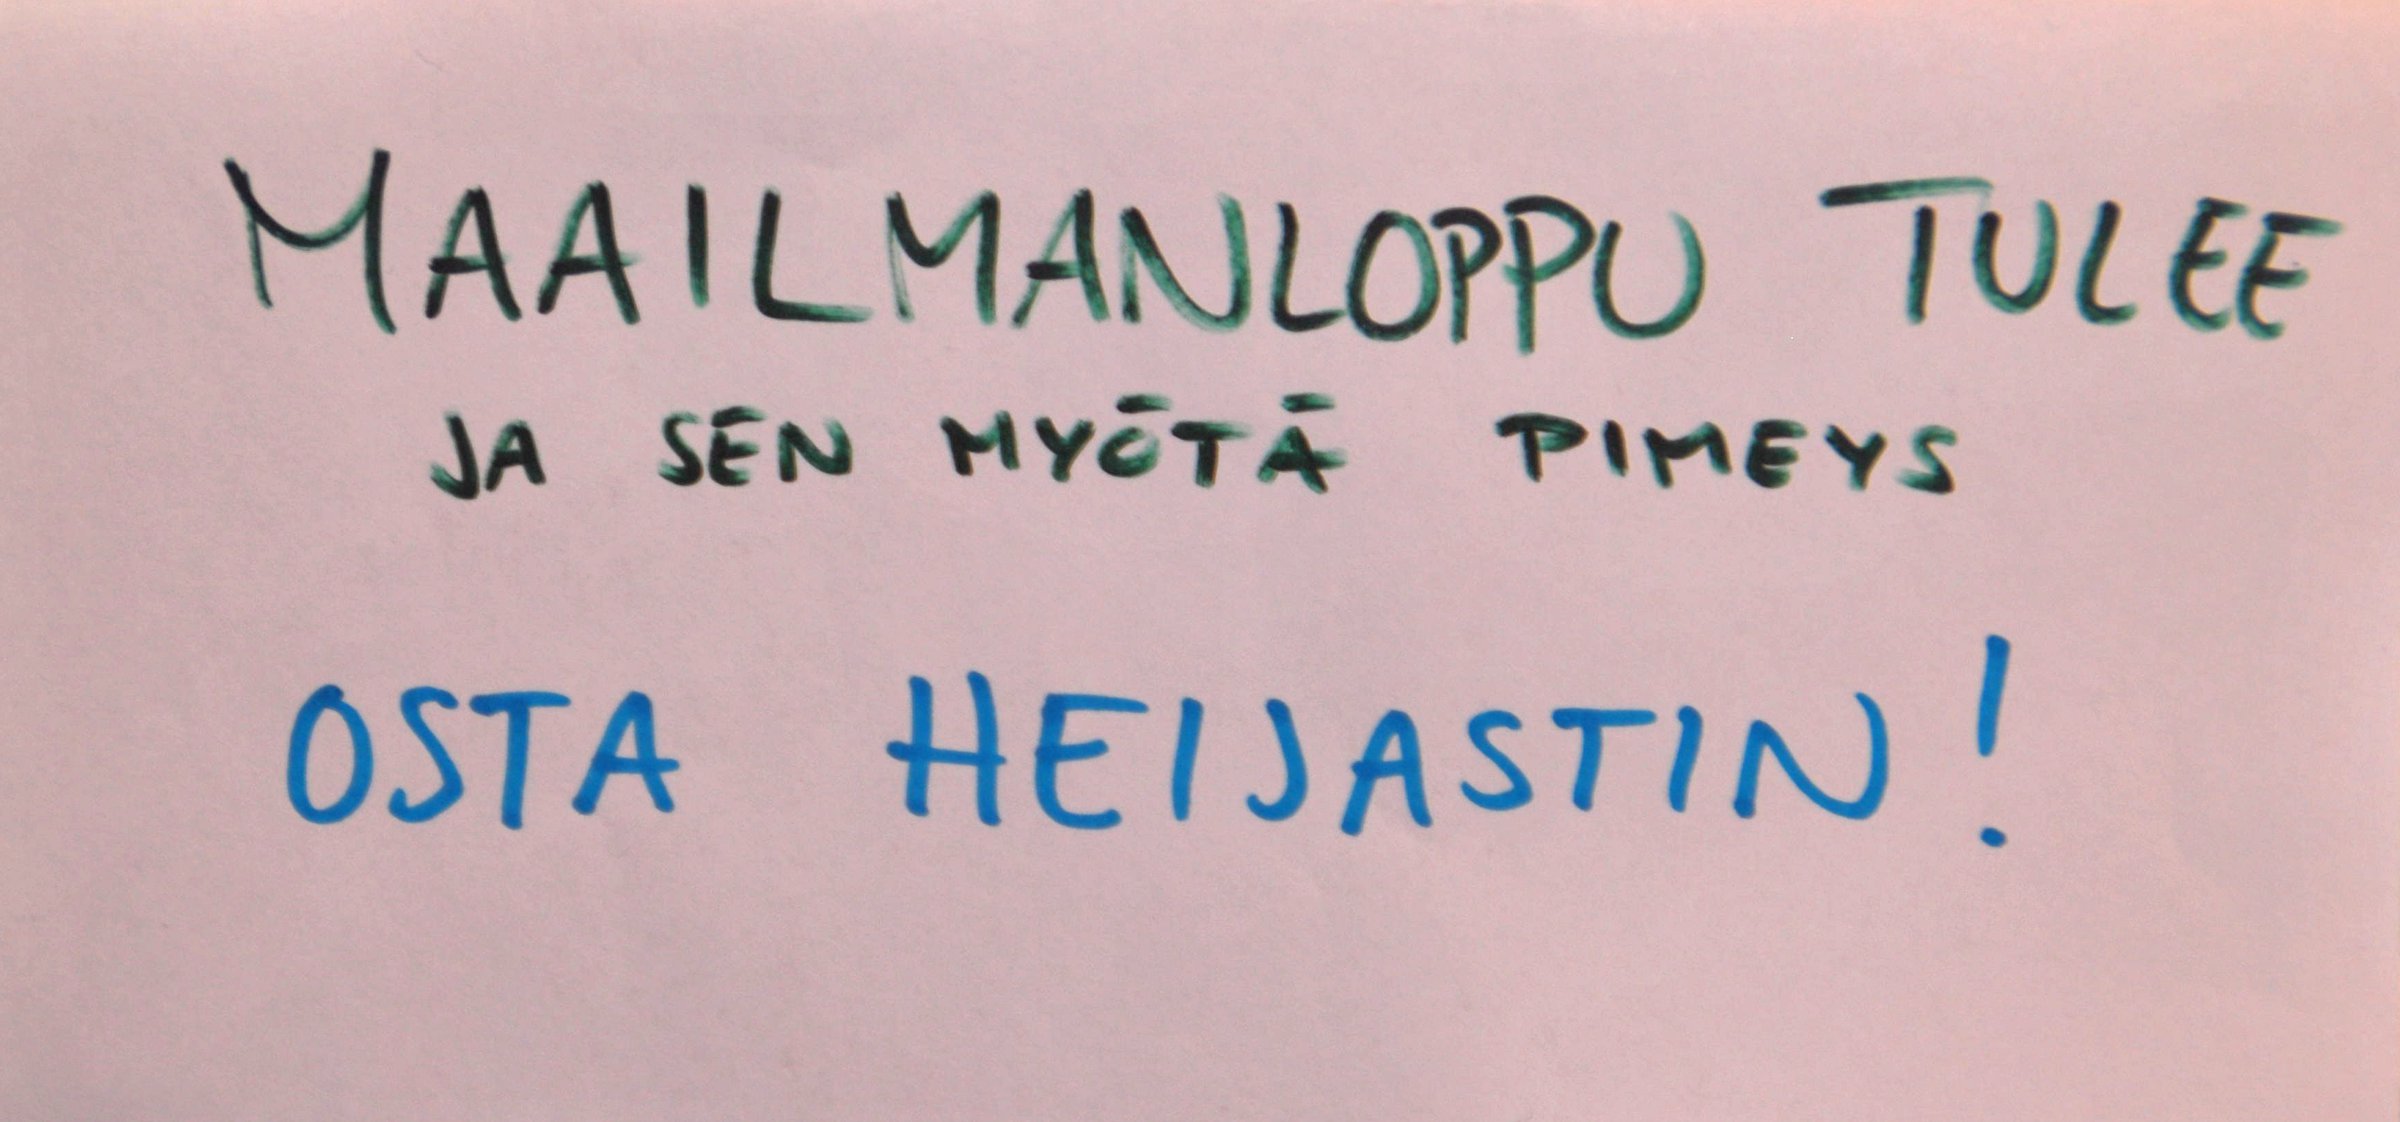 MAAILMANLOPPU TULEE
JA SEN MYÖTÄ PIMEYS
OSTA HEIJASTIN!